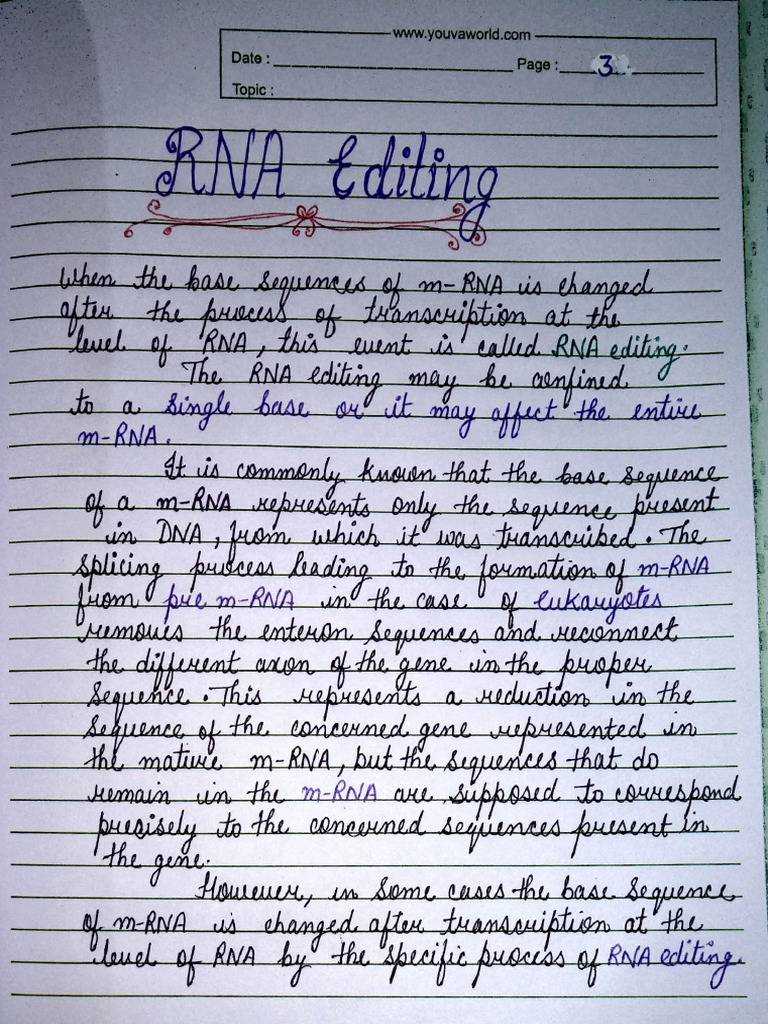 www.youvaworld.com
Date : Page : 3
Topic :
RNA Editing
When the base sequences of m-RNA is changed
after the process of transcription at the
level of RNA, this event is called RNA editing.
The RNA editing may be confined
to a single base or it may affect the entire
m-RNA.
It is commonly known that the base sequence
of a m-RNA represents only the sequence present
in DNA, from which it was transcribed. The
splicing process leading to the formation of m-RNA
from pre m-RNA in the case of eukaryotes
removes the enteron sequences and reconnect
the different axon of the gene in the proper
sequence. This represents a reduction in the
sequence of the concerned gene represented in
the mature m-RNA, but the sequences that do
remain in the m-RNA are supposed to correspond
precisely to the concerned sequences present in
the gene.
However, in some cases the base sequence
of m-RNA is changed after transcription at the
level of RNA by the specific process of RNA editing.